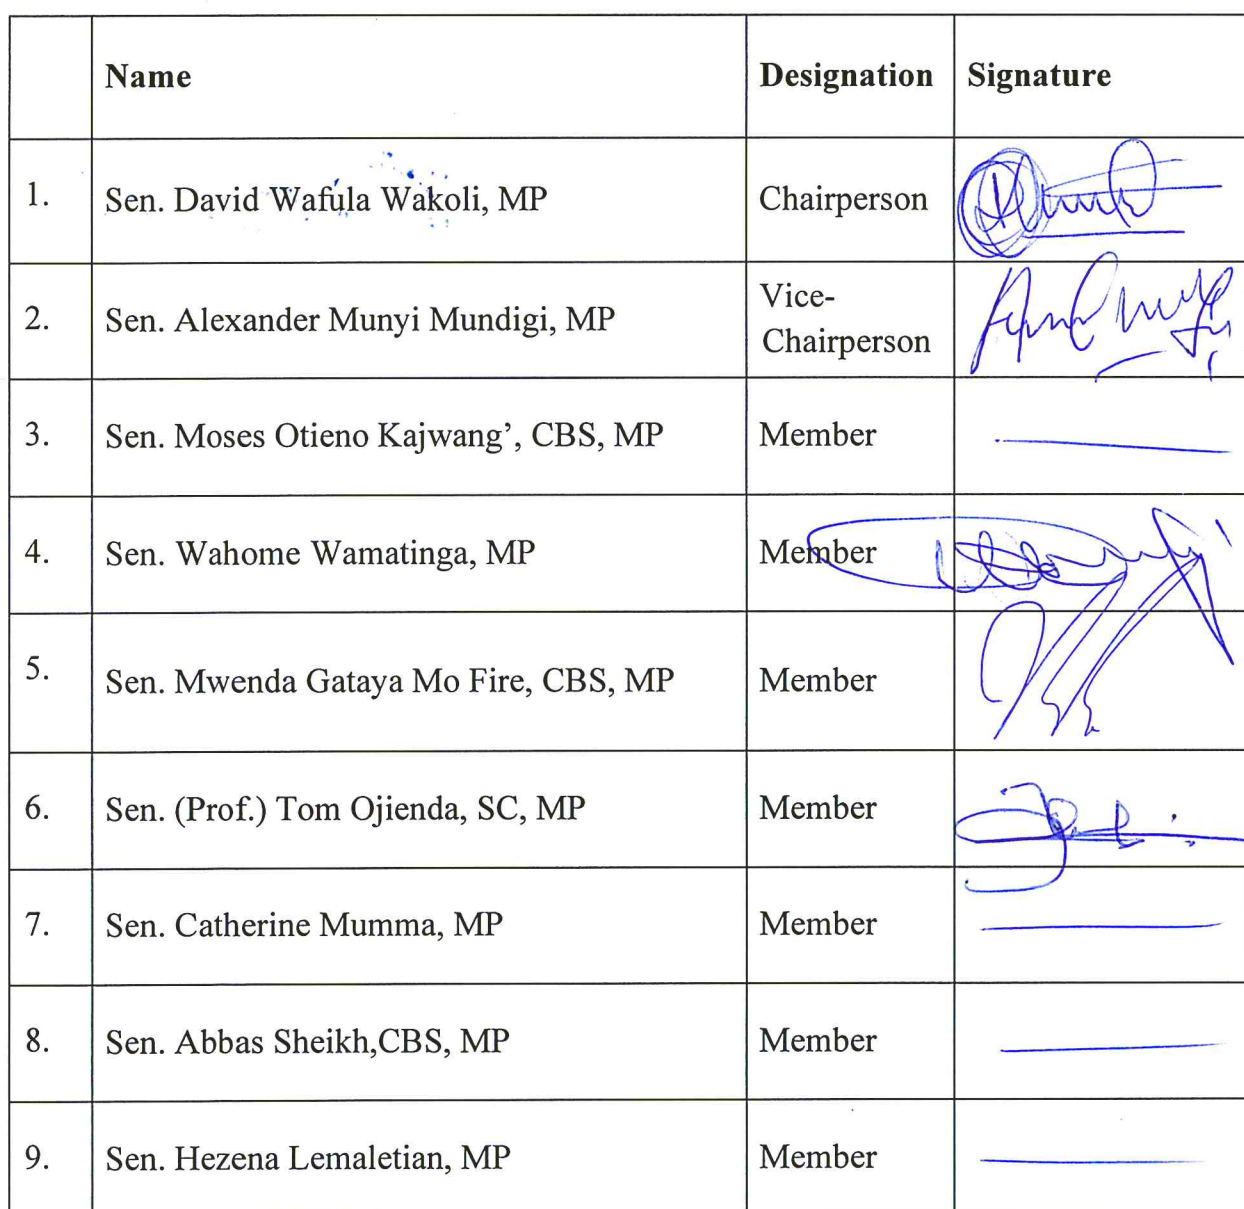 Name Designation Signature
1. Sen. David Wafula Wakoli, MP Chairperson
2. Sen. Alexander Munyi Mundigi, MP Vice-
Chairperson
3. Sen. Moses Otieno Kajwang’, CBS, MP Member
4. Sen. Wahome Wamatinga, MP Member
5. Sen. Mwenda Gataya Mo Fire, CBS, MP Member
6. Sen. (Prof.) Tom Ojienda, SC, MP Member
7. Sen. Catherine Mumma, MP Member
8. Sen. Abbas Sheikh,CBS, MP Member
9. Sen. Hezena Lemaletian, MP Member